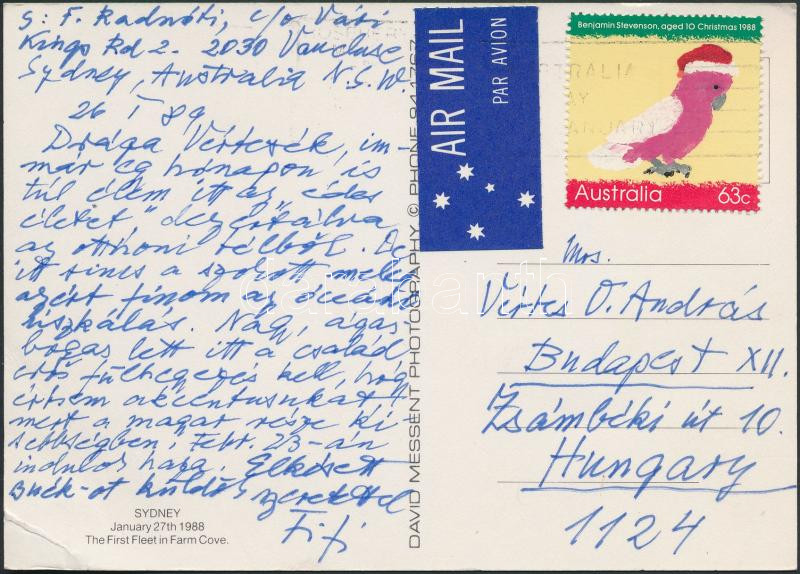 g: F. Radnóti, c/o Vári
Kings Rd 2. 2030 Vaucluse
Sydney, Australia N.S.W.
26 I 89
Drága Vértesék, im-
már egy hónapon is
túl élem itt az „édes
életet" dezertálva
az otthoni télből. De
itt sincs a szokott meleg
azért finom az óceáni
liszkálás. Nagy, ágas-
bogas lett itt a család
erős fülhegyezés kell, hogy
értsem akcentusukat
mert a magyar része ki-
sebbségben. Febr. 23-án
indulok haza. Elkésett
Buék-ot küldős szeretettel
Fifi
SYDNEY
January 27th 1988
The First Fleet in Farm Cove.
DAVID MESSENT PHOTOGRAPHY © PHONE 9441767
AIR MAIL
PAR AVION
Benjamin Stevenson, aged 10 Christmas 1988
Australia 63c
Mrs.
Vértes O. András
Budapest XII.
Zsámbéki út 10.
Hungary
1124
darabanth